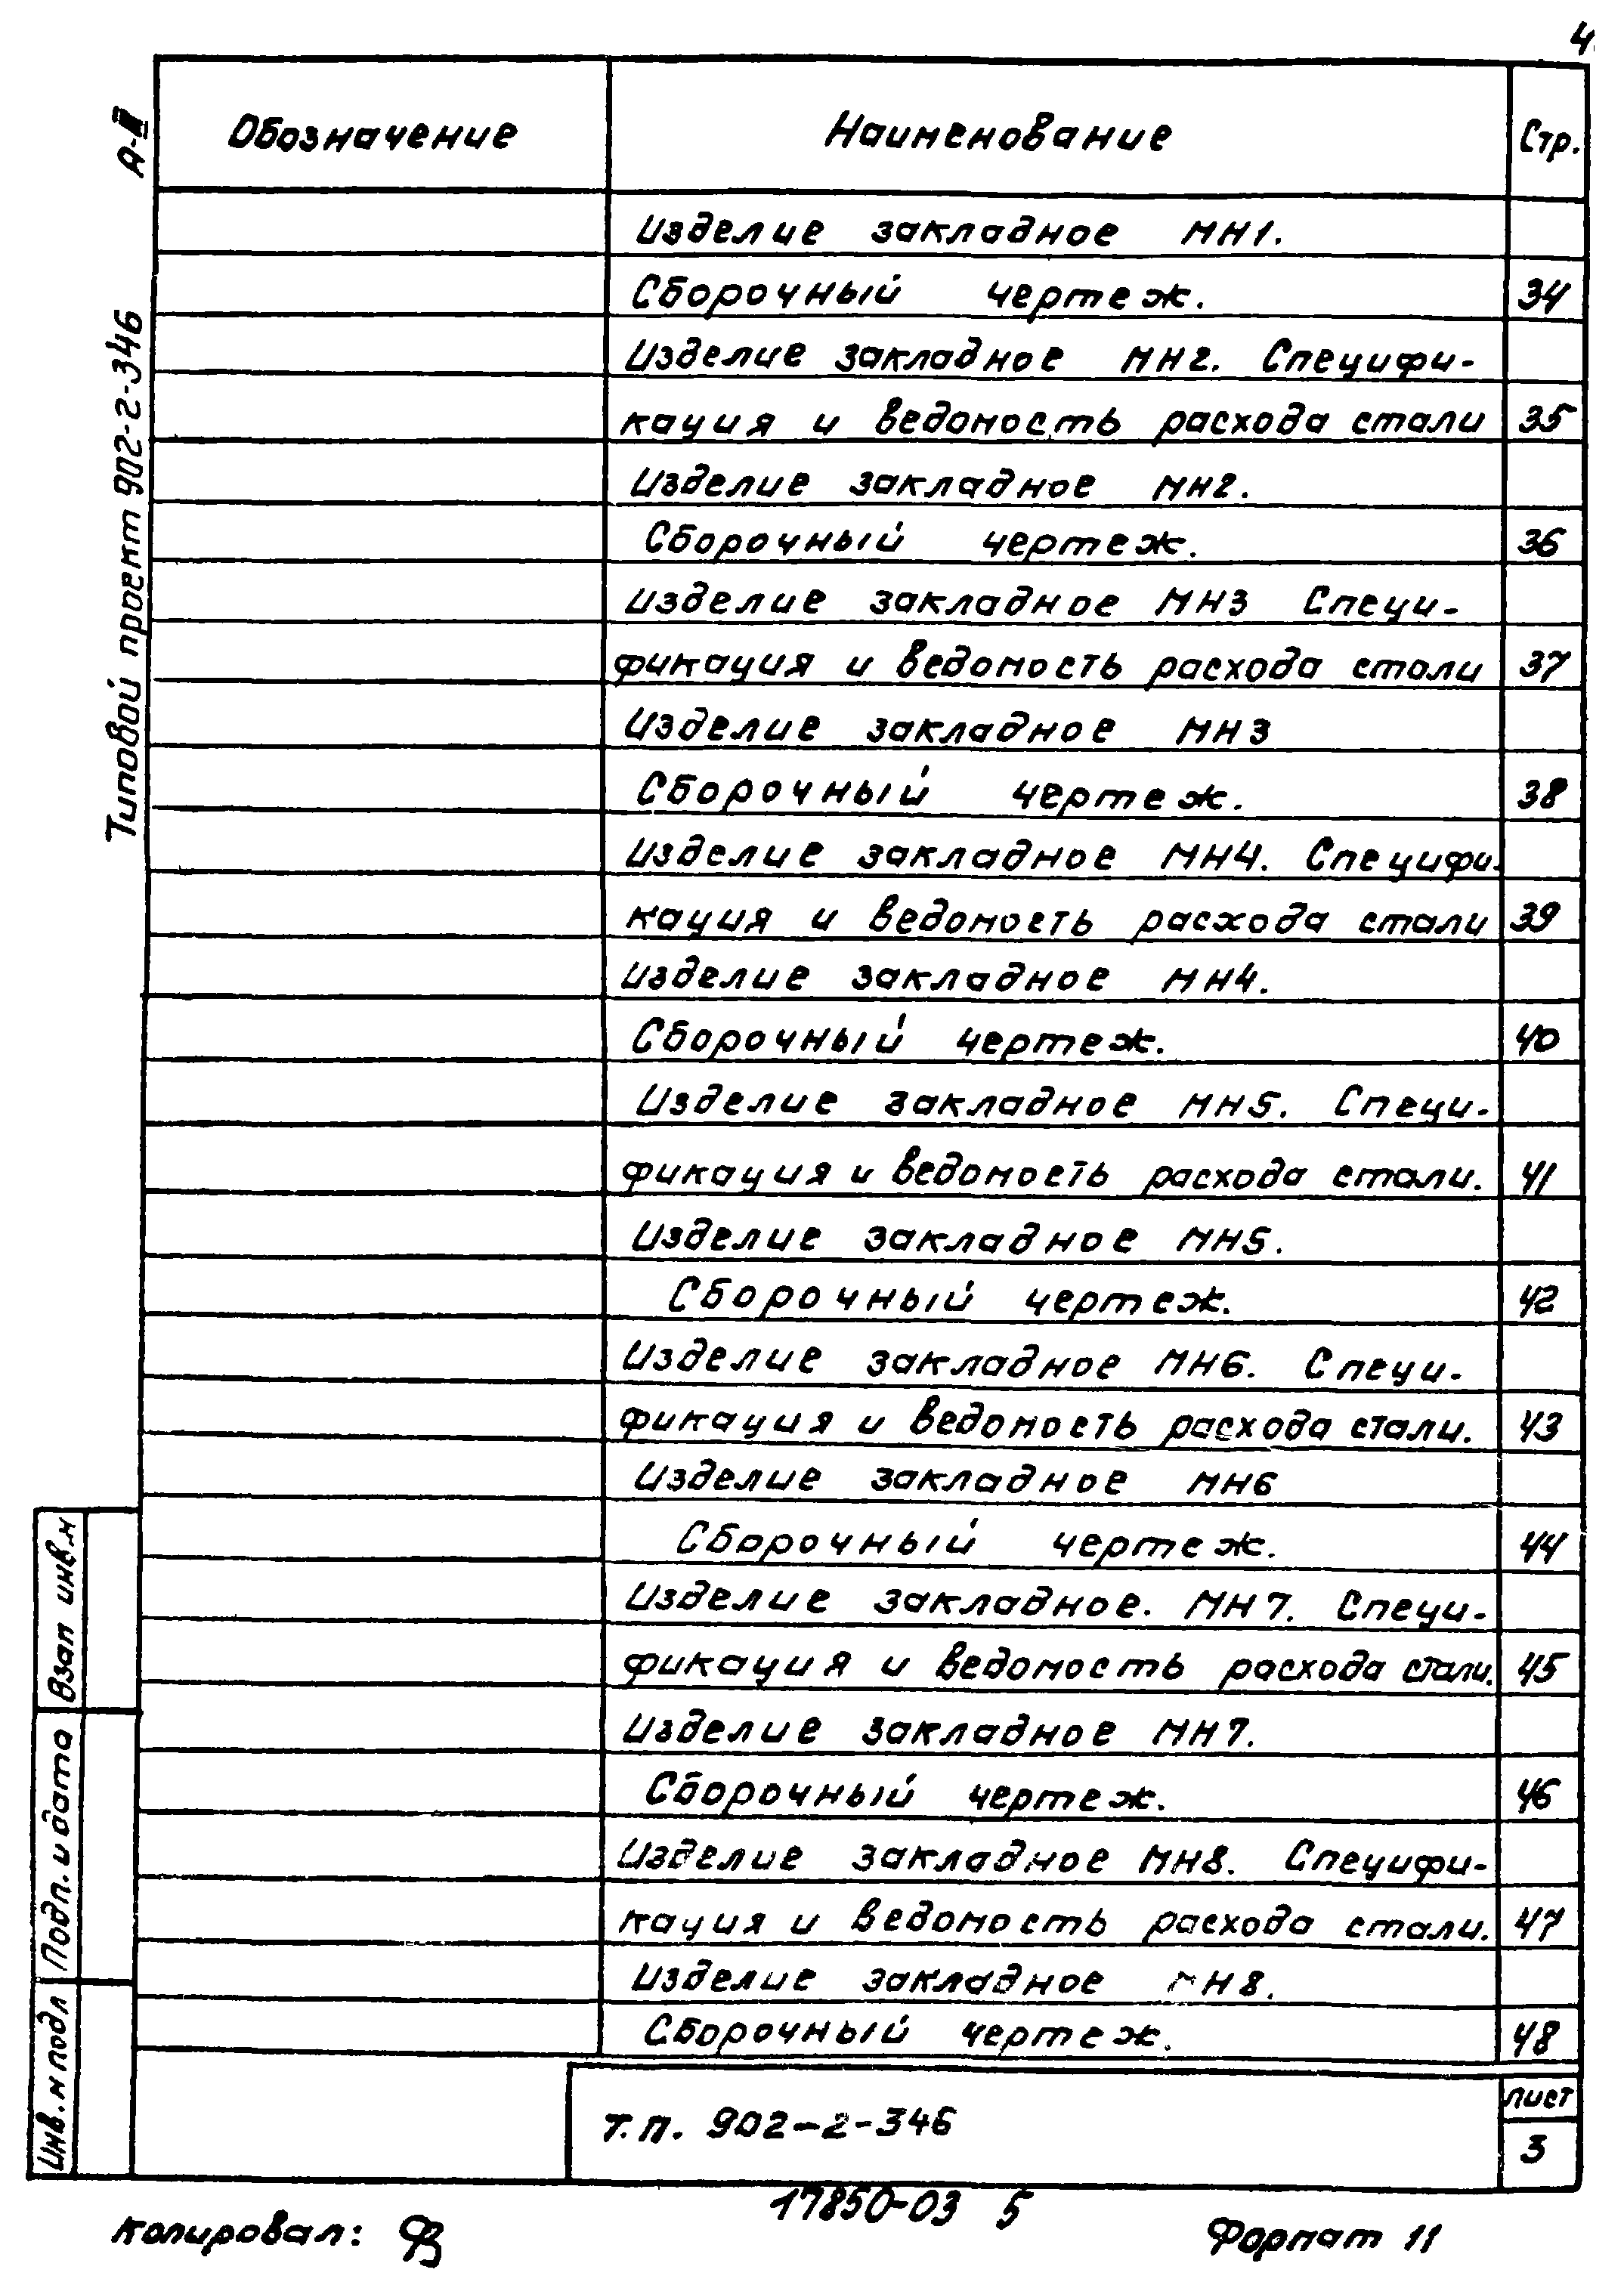 4
А-III
Типовой проект 902-2-346
Обозначение Наименование Стр.
Изделие закладное МН1.
Сборочный чертеж. 34
Изделие закладное МН2. Специфи-
кация и ведомость расхода стали 35
Изделие закладное МН2.
Сборочный чертеж. 36
Изделие закладное МН3 Специ-
фикация и ведомость расхода стали 37
Изделие закладное МН3
Сборочный чертеж. 38
Изделие закладное МН4. Специфи-
кация и ведомость расхода стали 39
Изделие закладное МН4.
Сборочный чертеж. 40
Изделие закладное МН5. Специ-
фикация и ведомость расхода стали. 41
Изделие закладное МН5.
Сборочный чертеж. 42
Изделие закладное МН6. Специ-
фикация и ведомость расхода стали. 43
Изделие закладное МН6
Сборочный чертеж. 44
Изделие закладное. МН7. Специ-
фикация и ведомость расхода стали. 45
Изделие закладное МН7.
Сборочный чертеж. 46
Изделие закладное МН8. Специфи-
кация и ведомость расхода стали. 47
Изделие закладное МН8.
Сборочный чертеж. 48
Взап инв.н
Подп. и дата
Инв. н подл
т.п. 902-2-346
лист
3
17850-03 5
Копировал:
Формат 11